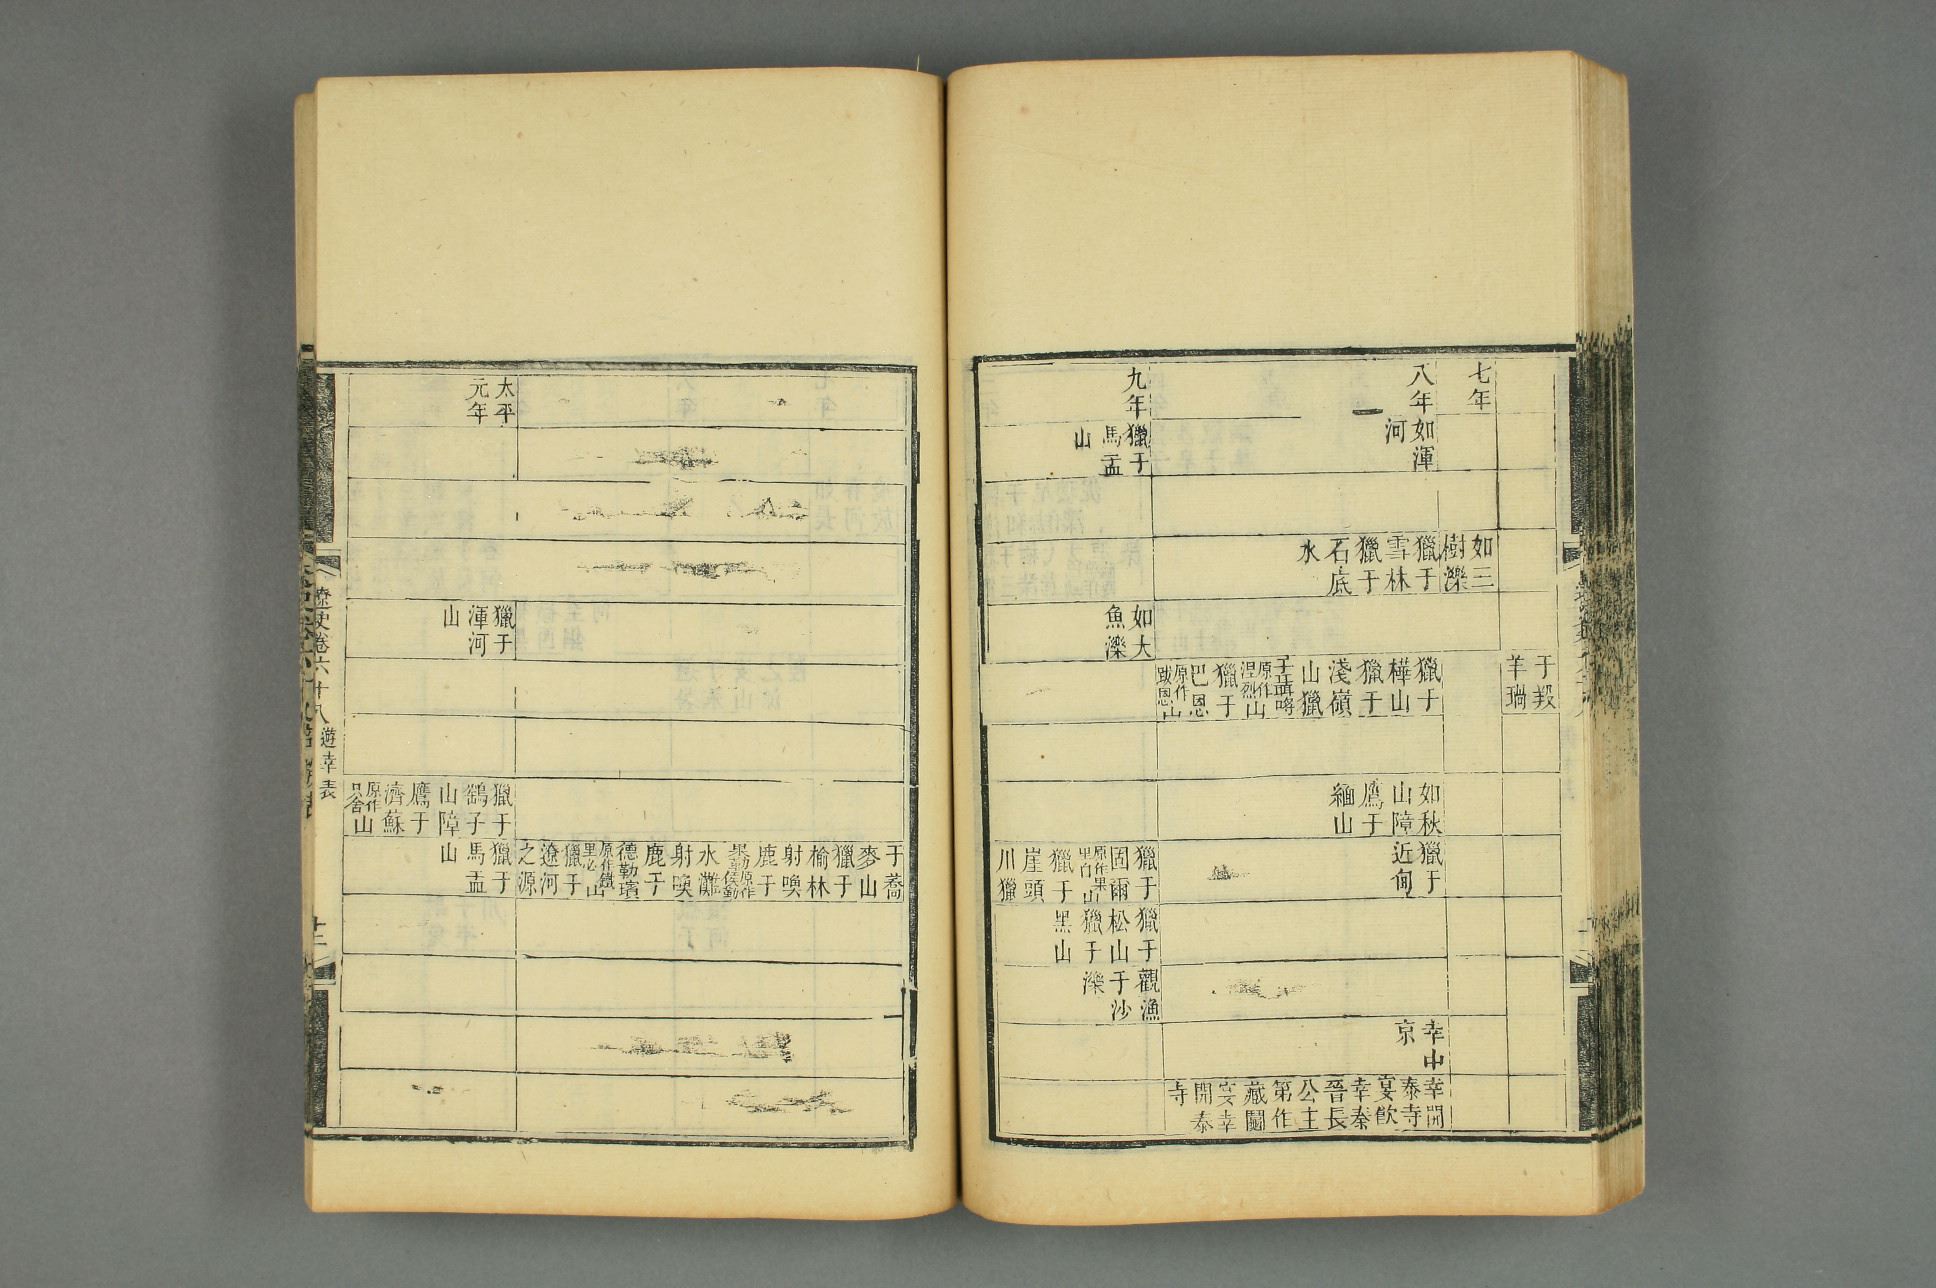 于羖
羊瑞
七年
如三
樹濼
八年
如渾
河
獵于
雪林
獵于
石底
水
獵于
樺山
獵于
淺嶺
山獵
原作
涅烈山
獵于
巴恩
原作
跋恩山
如秋
山障
鷹于
緬山
獵于
近甸
幸中
京
幸開
泰寺
宴飲
幸秦
晉長
公主
第作
藏鬮
宴幸
開泰
寺
九年
獵于
馬盂
山
如大
魚濼
獵于
固爾
原作果
里白山
獵于
崖頭
川獵
獵于
松山
獵于
黑山
觀漁
于沙
濼
于蕎
麥山
獵于
榆林
射喚
鹿于
水灘
射喚
鹿于
德勒璸
原作鐵
里必山
獵于
遼河
之源
太平
元年
獵于
渾河
山
獵于
鶴子
山障
鷹于
濟蘇
原作
只舍山
獵于
馬盂
山
遼史卷六十八
遊幸表
十三